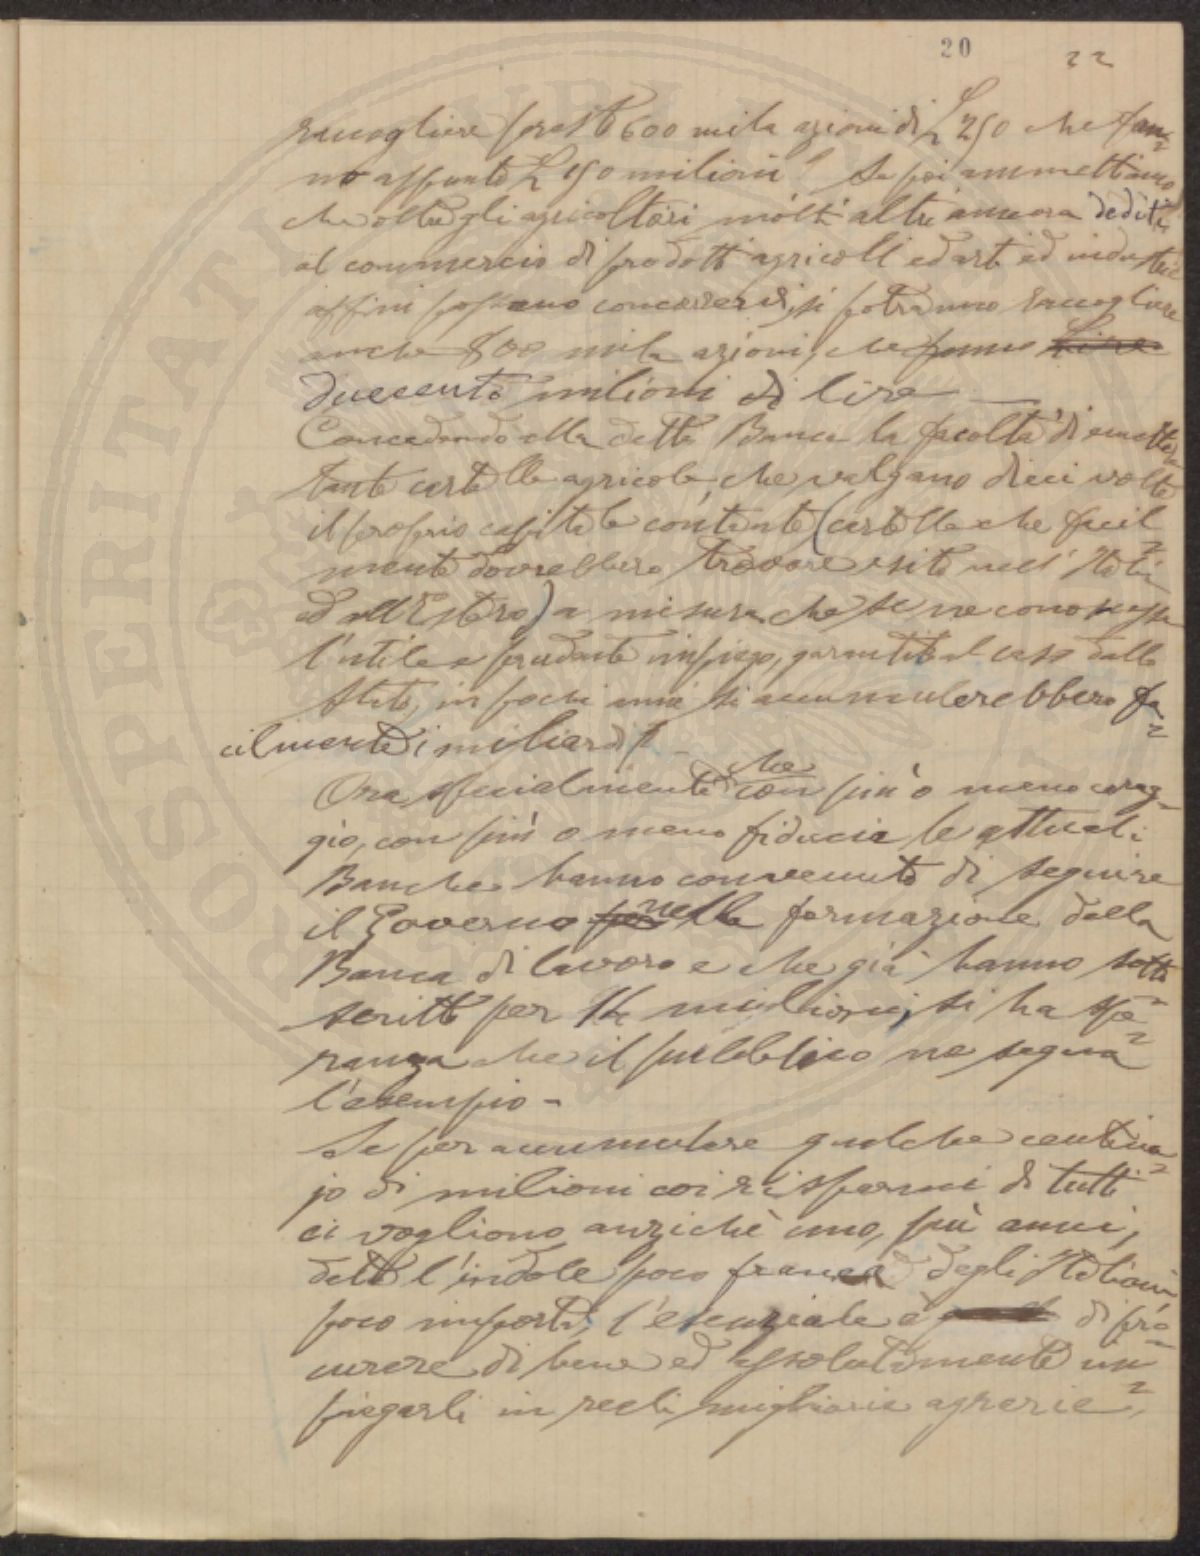 20 22
raccogliere presto 600 mila azioni di £ 250 che fan=
no appunto £ 150 milioni? Se poi ammettiamo
che oltre gli agricoltori molti altri ancora dediti
al commercio di prodotti agricoli ed arti ed industrie
affini possano concorrervi, si potranno raccogliere
anche 800 mila azioni, che fanno Lire
duecento milioni di lire —
Concedendo alla detta Banca la facoltà di emettere
tante cartelle agricole, che valgano dieci volte
il proprio capitale contante (cartelle che facil=
mente dovrebbero trovare esito nell'Italia
ed all'Estero) a misura che se ne conoscesse
l'utile e prudente impiego, garantite al caso dallo
Stato, in pochi anni si accumulerebbero fa=
cilmente i miliardi! —
Ora specialmente che con più o meno corag=
gio, con più o meno fiducia le attuali
Banche hanno convenuto di seguire
il Governo nella formazione della
Banca di lavoro e che già hanno sotto=
scritto per milioni, si ha spe=
ranza che il pubblico ne segua
l'esempio —
Se per accumulare qualche centina=
jo di milioni coi risparmi di tutti
ci vogliono anzichè uno, più anni,
data l'indole poco franca degli Italiani
poco importa, l'essenziale è di pro=
curare di bene ed assolutamente im=
piegarli in reali migliorie agrarie,